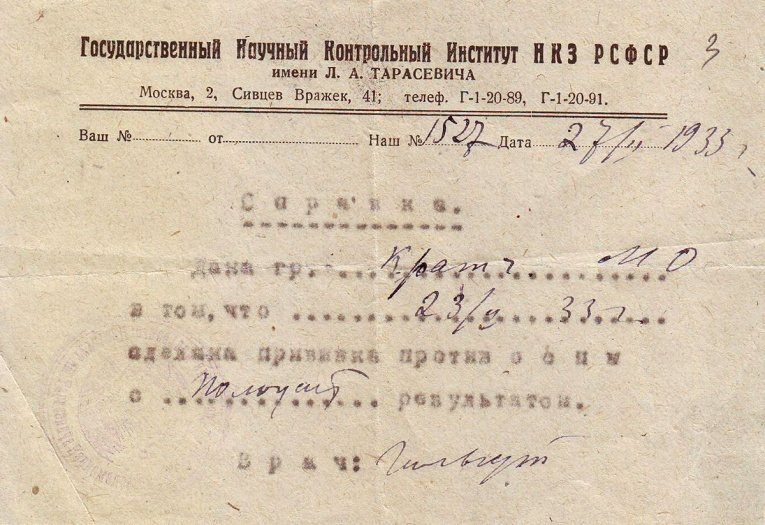 Государственный Научный Контрольный Институт НКЗ РСФСР 3
имени Л. А. ТАРАСЕВИЧА
Москва, 2, Сивцев Вражек, 41; телеф. Г-1-20-89, Г-1-20-91.
Ваш № от Наш № 1527 Дата 27/II 1933 г.
Справка.
Дана гр. МО
в том, что 23/II 33 г.
сделана прививка против оспы
с результатом.
Врач: